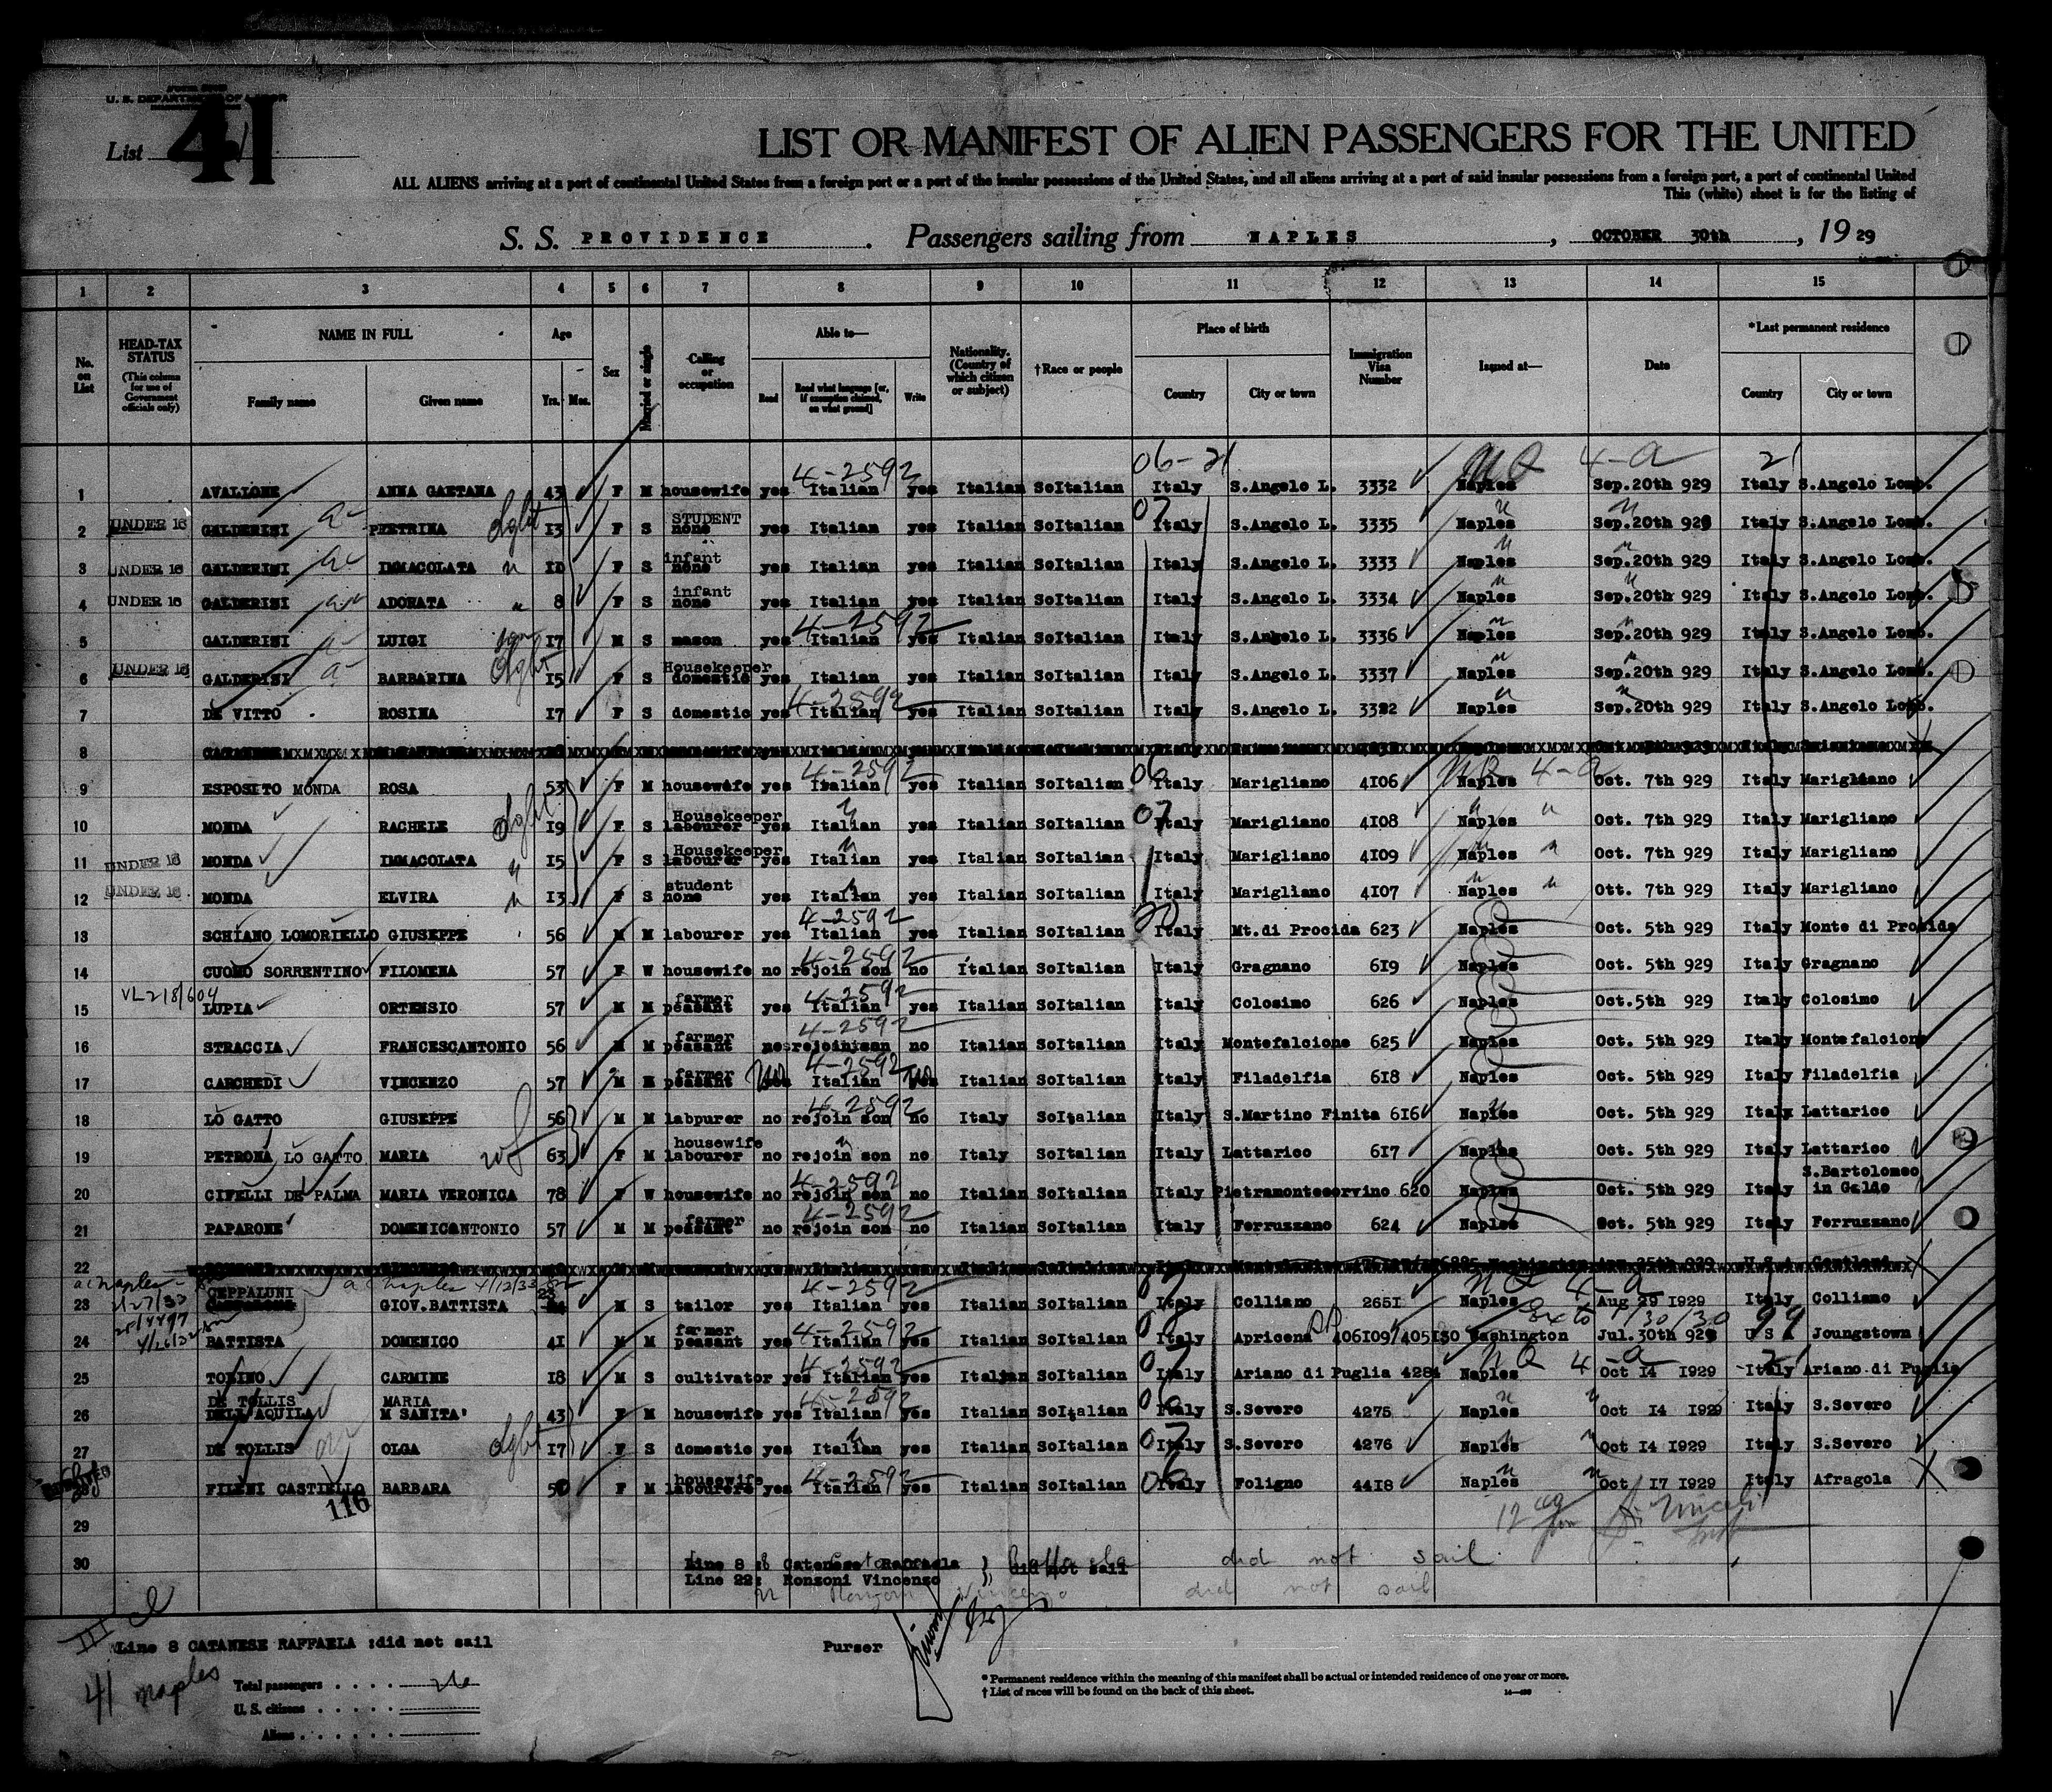 U. S. DEPARTMENT OF LABOR
List 41
LIST OR MANIFEST OF ALIEN PASSENGERS FOR THE UNITED
ALL ALIENS arriving at a port of continental United States from a foreign port or a port of the insular possessions of the United States, and all aliens arriving at a port of said insular possessions from a foreign port, a port of continental United
This (white) sheet is for the listing of
S. S. PROVIDENCE . Passengers sailing from NAPLES , OCTOBER 30th , 19 29
1 2 3 4 5 6 7 8 9 10 11 12 13 14 15
No. on List HEAD-TAX STATUS (This column for use of Government officials only) NAME IN FULL Family name Given name Age Yrs. Mos. Sex Married or single Calling or occupation Able to— Read Read what language [or, if exemption claimed, on what ground] Write Nationality. (Country of which citizen or subject) †Race or people Place of birth Country City or town Immigration Visa Number Issued at— Date *Last permanent residence Country City or town
06-21 4-a 21
1 AVALLONE ANNA GAETANA 43 F M housewife yes 4-2592 Italian yes Italian SoItalian Italy S.Angelo L. 3332 Naples Sep.20th 929 Italy S.Angelo Lomb.
2 UNDER 16 GALDERINI PIETRINA dght 13 F S STUDENT none yes Italian yes Italian SoItalian 07 Italy S.Angelo L. 3335 Naples Sep.20th 929 Italy S.Angelo Lomb.
3 UNDER 16 GALDERINI IMMACOLATA " 11 F S infant none yes Italian yes Italian SoItalian Italy S.Angelo L. 3333 Naples Sep.20th 929 Italy S.Angelo Lomb.
4 UNDER 16 GALDERINI ADONATA " 8 F S infant none yes Italian yes Italian SoItalian Italy S.Angelo L. 3334 Naples Sep.20th 929 Italy S.Angelo Lomb.
5 GALDERINI LUIGI son 17 M S mason yes 4-2592 Italian yes Italian SoItalian Italy S.Angelo L. 3336 Naples Sep.20th 929 Italy S.Angelo Lomb.
6 UNDER 16 GALDERINI BARBARINA dght 15 F S Housekeeper domestic yes Italian yes Italian SoItalian Italy S.Angelo L. 3337 Naples Sep.20th 929 Italy S.Angelo Lomb.
7 DE VITTO ROSINA 17 F S domestic yes 4-2592 Italian yes Italian SoItalian Italy S.Angelo L. 3322 Naples Sep.20th 929 Italy S.Angelo Lomb.
8
9 ESPOSITO MONDA ROSA 53 F M housewife yes 4-2592 Italian yes Italian SoItalian 06 Italy Marigliano 4106 Naples 4-a Oct. 7th 929 Italy Marigliano
10 MONDA RACHELE dght 19 F S Housekeeper labourer yes Italian yes Italian SoItalian 07 Italy Marigliano 4108 Naples Oct. 7th 929 Italy Marigliano
11 UNDER 16 MONDA IMMACOLATA " 15 F S Housekeeper labourer yes Italian yes Italian SoItalian Italy Marigliano 4109 Naples Oct. 7th 929 Italy Marigliano
12 UNDER 16 MONDA ELVIRA " 13 F S student none yes Italian yes Italian SoItalian Italy Marigliano 4107 Naples Ott. 7th 929 Italy Marigliano
13 SCHIANO LOMORIELLO GIUSEPPE 56 M M labourer yes 4-2592 Italian yes Italian SoItalian Italy Mt.di Procida 623 Naples Oct. 5th 929 Italy Monte di Procida
14 CUOMO SORRENTINO FILOMENA 57 F W housewife no 4-2592 rejoin son no Italian SoItalian Italy Gragnano 619 Naples Oct. 5th 929 Italy Gragnano
15 VL218/604 LUPIA ORTENSIO 57 M M farmer peasant yes 4-2592 Italian yes Italian SoItalian Italy Colosimo 626 Naples Oct.5th 929 Italy Colosimo
16 STRACCIA FRANCESCANTONIO 56 M M farmer peasant no 4-2592 rejoin son no Italian SoItalian Italy Montefalcione 625 Naples Oct. 5th 929 Italy Montefalcione
17 CARCHEDI VINCENZO 57 M M farmer peasant no 4-2592 Italian no Italian SoItalian Italy Filadelfia 618 Naples Oct. 5th 929 Italy Filadelfia
18 LO GATTO GIUSEPPE 56 M M labpurer no 4-2592 rejoin son no Italy SoItalian Italy S.Martino Finita 616 Naples Oct. 5th 929 Italy Lattarico
19 PETRONA LO GATTO MARIA wf 63 F M housewife labourer no rejoin son no Italy SoItalian Italy Lattarico 617 Naples Oct. 5th 929 Italy Lattarico
20 CIFELLI DE PALMA MARIA VERONICA 78 F W housewife no 4-2592 rejoin son no Italian SoItalian Italy Pietramontecorvino 620 Naples Oct. 5th 929 Italy S.Bartolomeo in Galdo
21 PAPARONE DOMENICANTONIO 57 M M farmer peasant no 4-2592 rejoin son no Italian SoItalian Italy Ferruzzano 624 Naples Oct. 5th 929 Italy Ferruzzano
22
a c Naples 4/12/33
23 CEPPALUNI GIOV.BATTISTA 23 M S tailor yes 4-2592 Italian yes Italian SoItalian 07 Italy Colliano 2651 Naples 4-a Aug 29 1929 Italy Colliano
24 BATTISTA DOMENICO 41 M M farmer peasant yes 4-2592 Italian yes Italian SoItalian Italy Apricena 406109/405130 Washington Ex to 1/30/30 Jul.30th 929 99 U S Joungstown
25 TORINO CARMINE 18 M S cultivator yes 4-2592 Italian yes Italian SoItalian 07 Italy Ariano di Puglia 4284 Naples 4-a Oct 14 1929 21 Italy Ariano di Puglia
26 DE TOLLIS DELL'AQUILA MARIA M SANITA' 43 F M housewife yes 4-2592 Italian yes Italian SoItalian 06 Italy S.Severo 4275 Naples Oct 14 1929 Italy S.Severo
27 DE TOLLIS OLGA dght 17 F S domestic yes Italian yes Italian SoItalian 07 Italy S.Severo 4276 Naples Oct 14 1929 Italy S.Severo
28 FILENI CASTIELLO BARBARA 50 F M housewife labourere yes 4-2592 Italian yes Italian SoItalian 06 Italy Foligno 4418 Naples Oct 17 1929 Italy Afragola
116
29
30 Line 8 : Catanese Raffaela ) did not sail did not sail
Line 22: Ronzoni Vincenzo ) Ronzoni Vincenzo did not sail
Line 8 CATANESE RAFFAELA :did not sail
Purser
41 Naples
Total passengers . . . . 26
U. S. citizens . . . . .
Aliens . . . . . .
* Permanent residence within the meaning of this manifest shall be actual or intended residence of one year or more.
† List of races will be found on the back of this sheet.